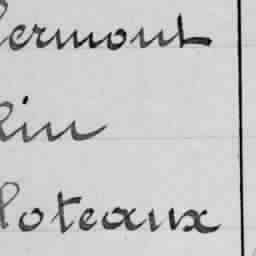 lermont
kin
loteaux